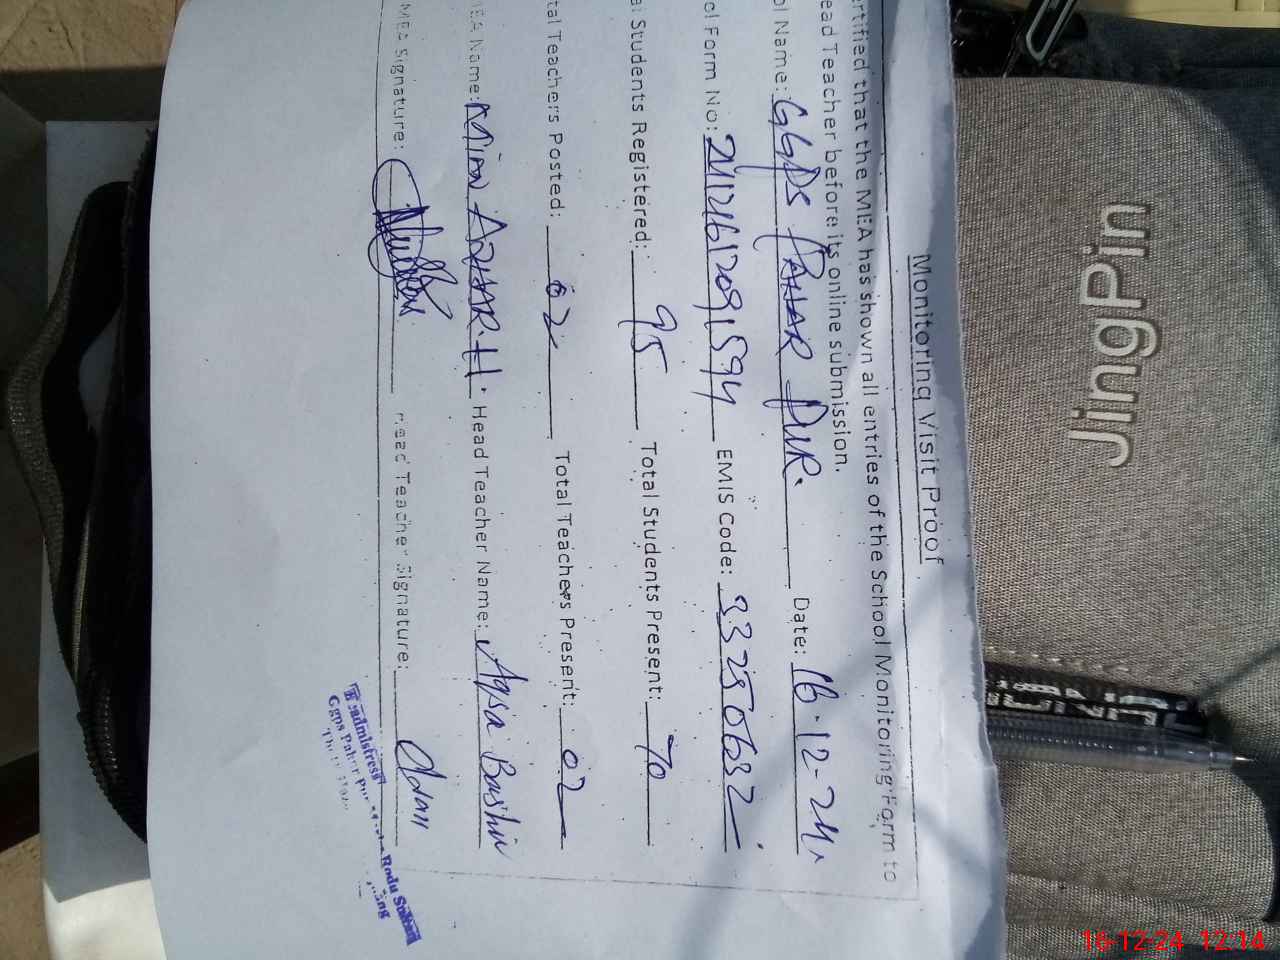 Monitoring Visit Proof
ertified that the MEA has shown all entries of the School Monitoring Form to
ead Teacher before its online submission.
ol Name: GGPS PAHAR PUR. Date: 16-12-24
ol Form No: EMIS Code: 33250632
al Students Registered: 95 Total Students Present: 70
tal Teachers Posted: 02 Total Teachers Present: 02
MEA Name: Mian AZHAR H. Head Teacher Name: Aqsa Bashir
MEA Signature: Head Teacher Signature:
Headmistress
Ggps Pahar Pur Rodu Sultan
JingPin
16-12-24 12:14